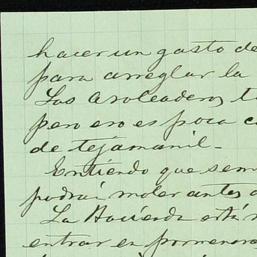 hacer un gasto de
para arreglar la
Los Asoleaderos t
pero eso es poca c
de tejamanil.
Entiendo que sem
podrá moler antes d
La Hacienda está m
entrar en pormenore